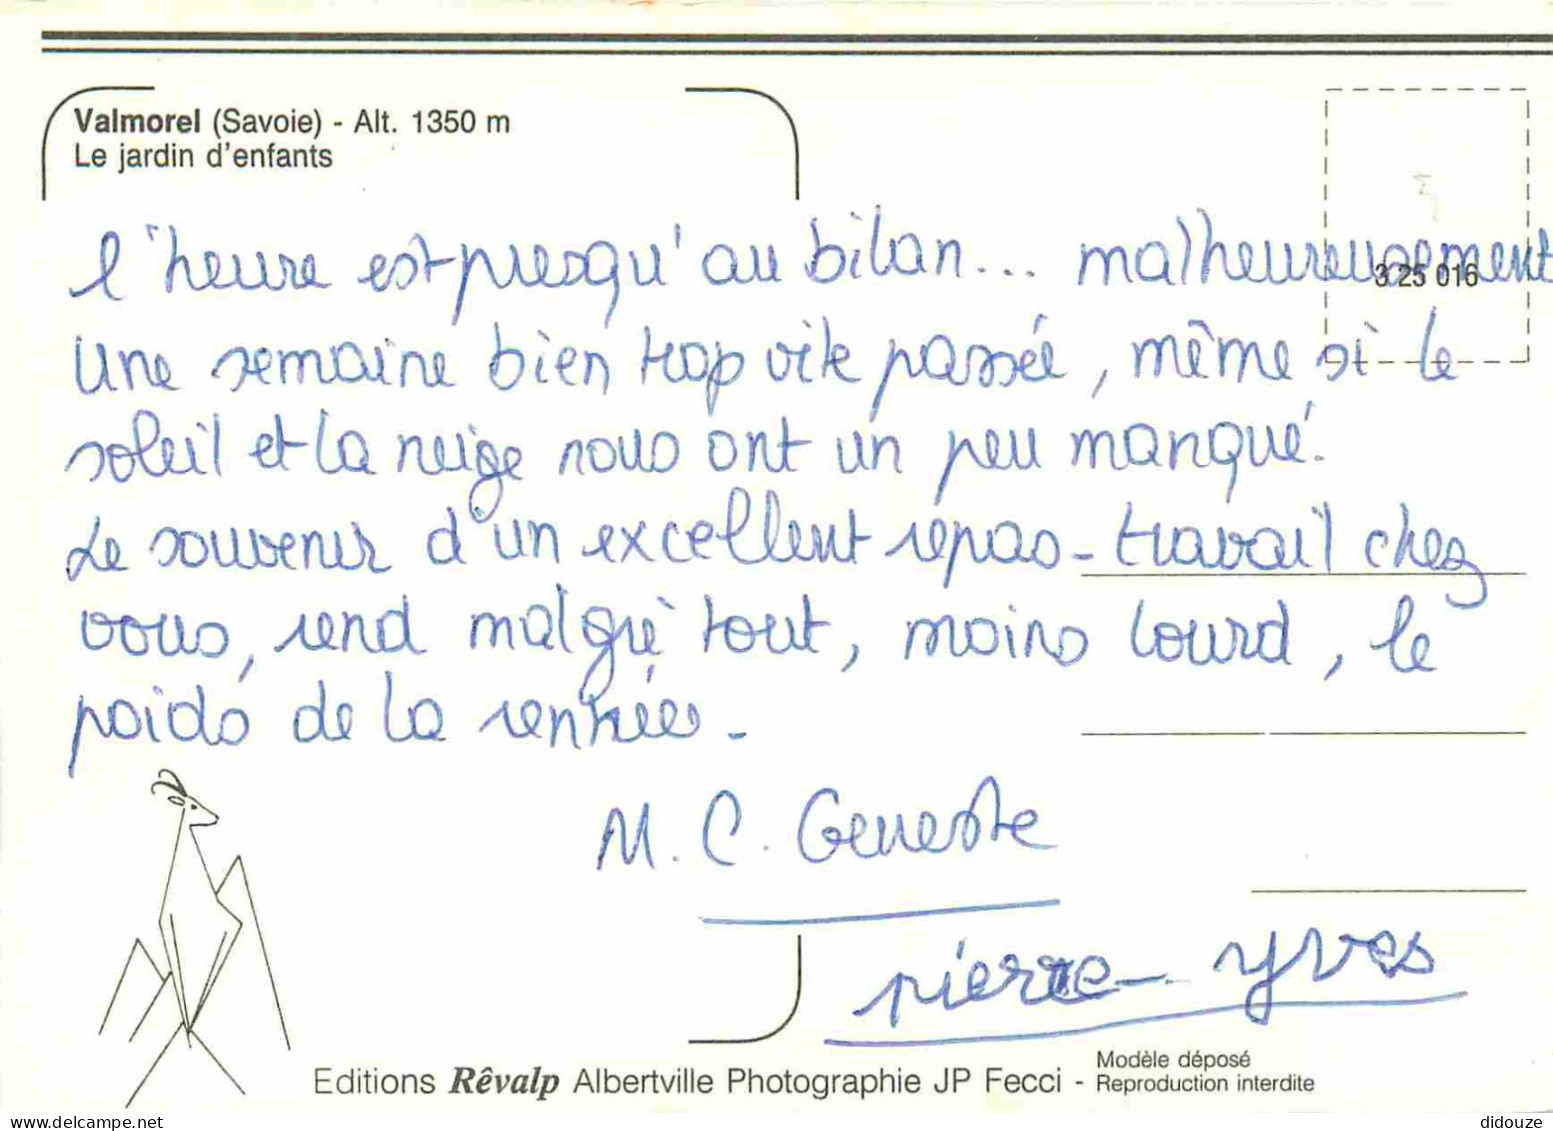 Valmorel (Savoie) - Alt. 1350 m
Le jardin d'enfants
3 25 016
l'heure est presqu'au bilan... malheureusement
Une semaine bien trop vite passée, même si le
soleil et la neige nous ont un peu manqué.
Le souvenir d'un excellent repas-travail chez
vous, rend malgré tout, moins lourd, le
poids de la rentrée.
M. C. Geneste
Pierre-Yves
Editions Rêvalp Albertville Photographie JP Fecci - Modèle déposé
Reproduction interdite
didouze